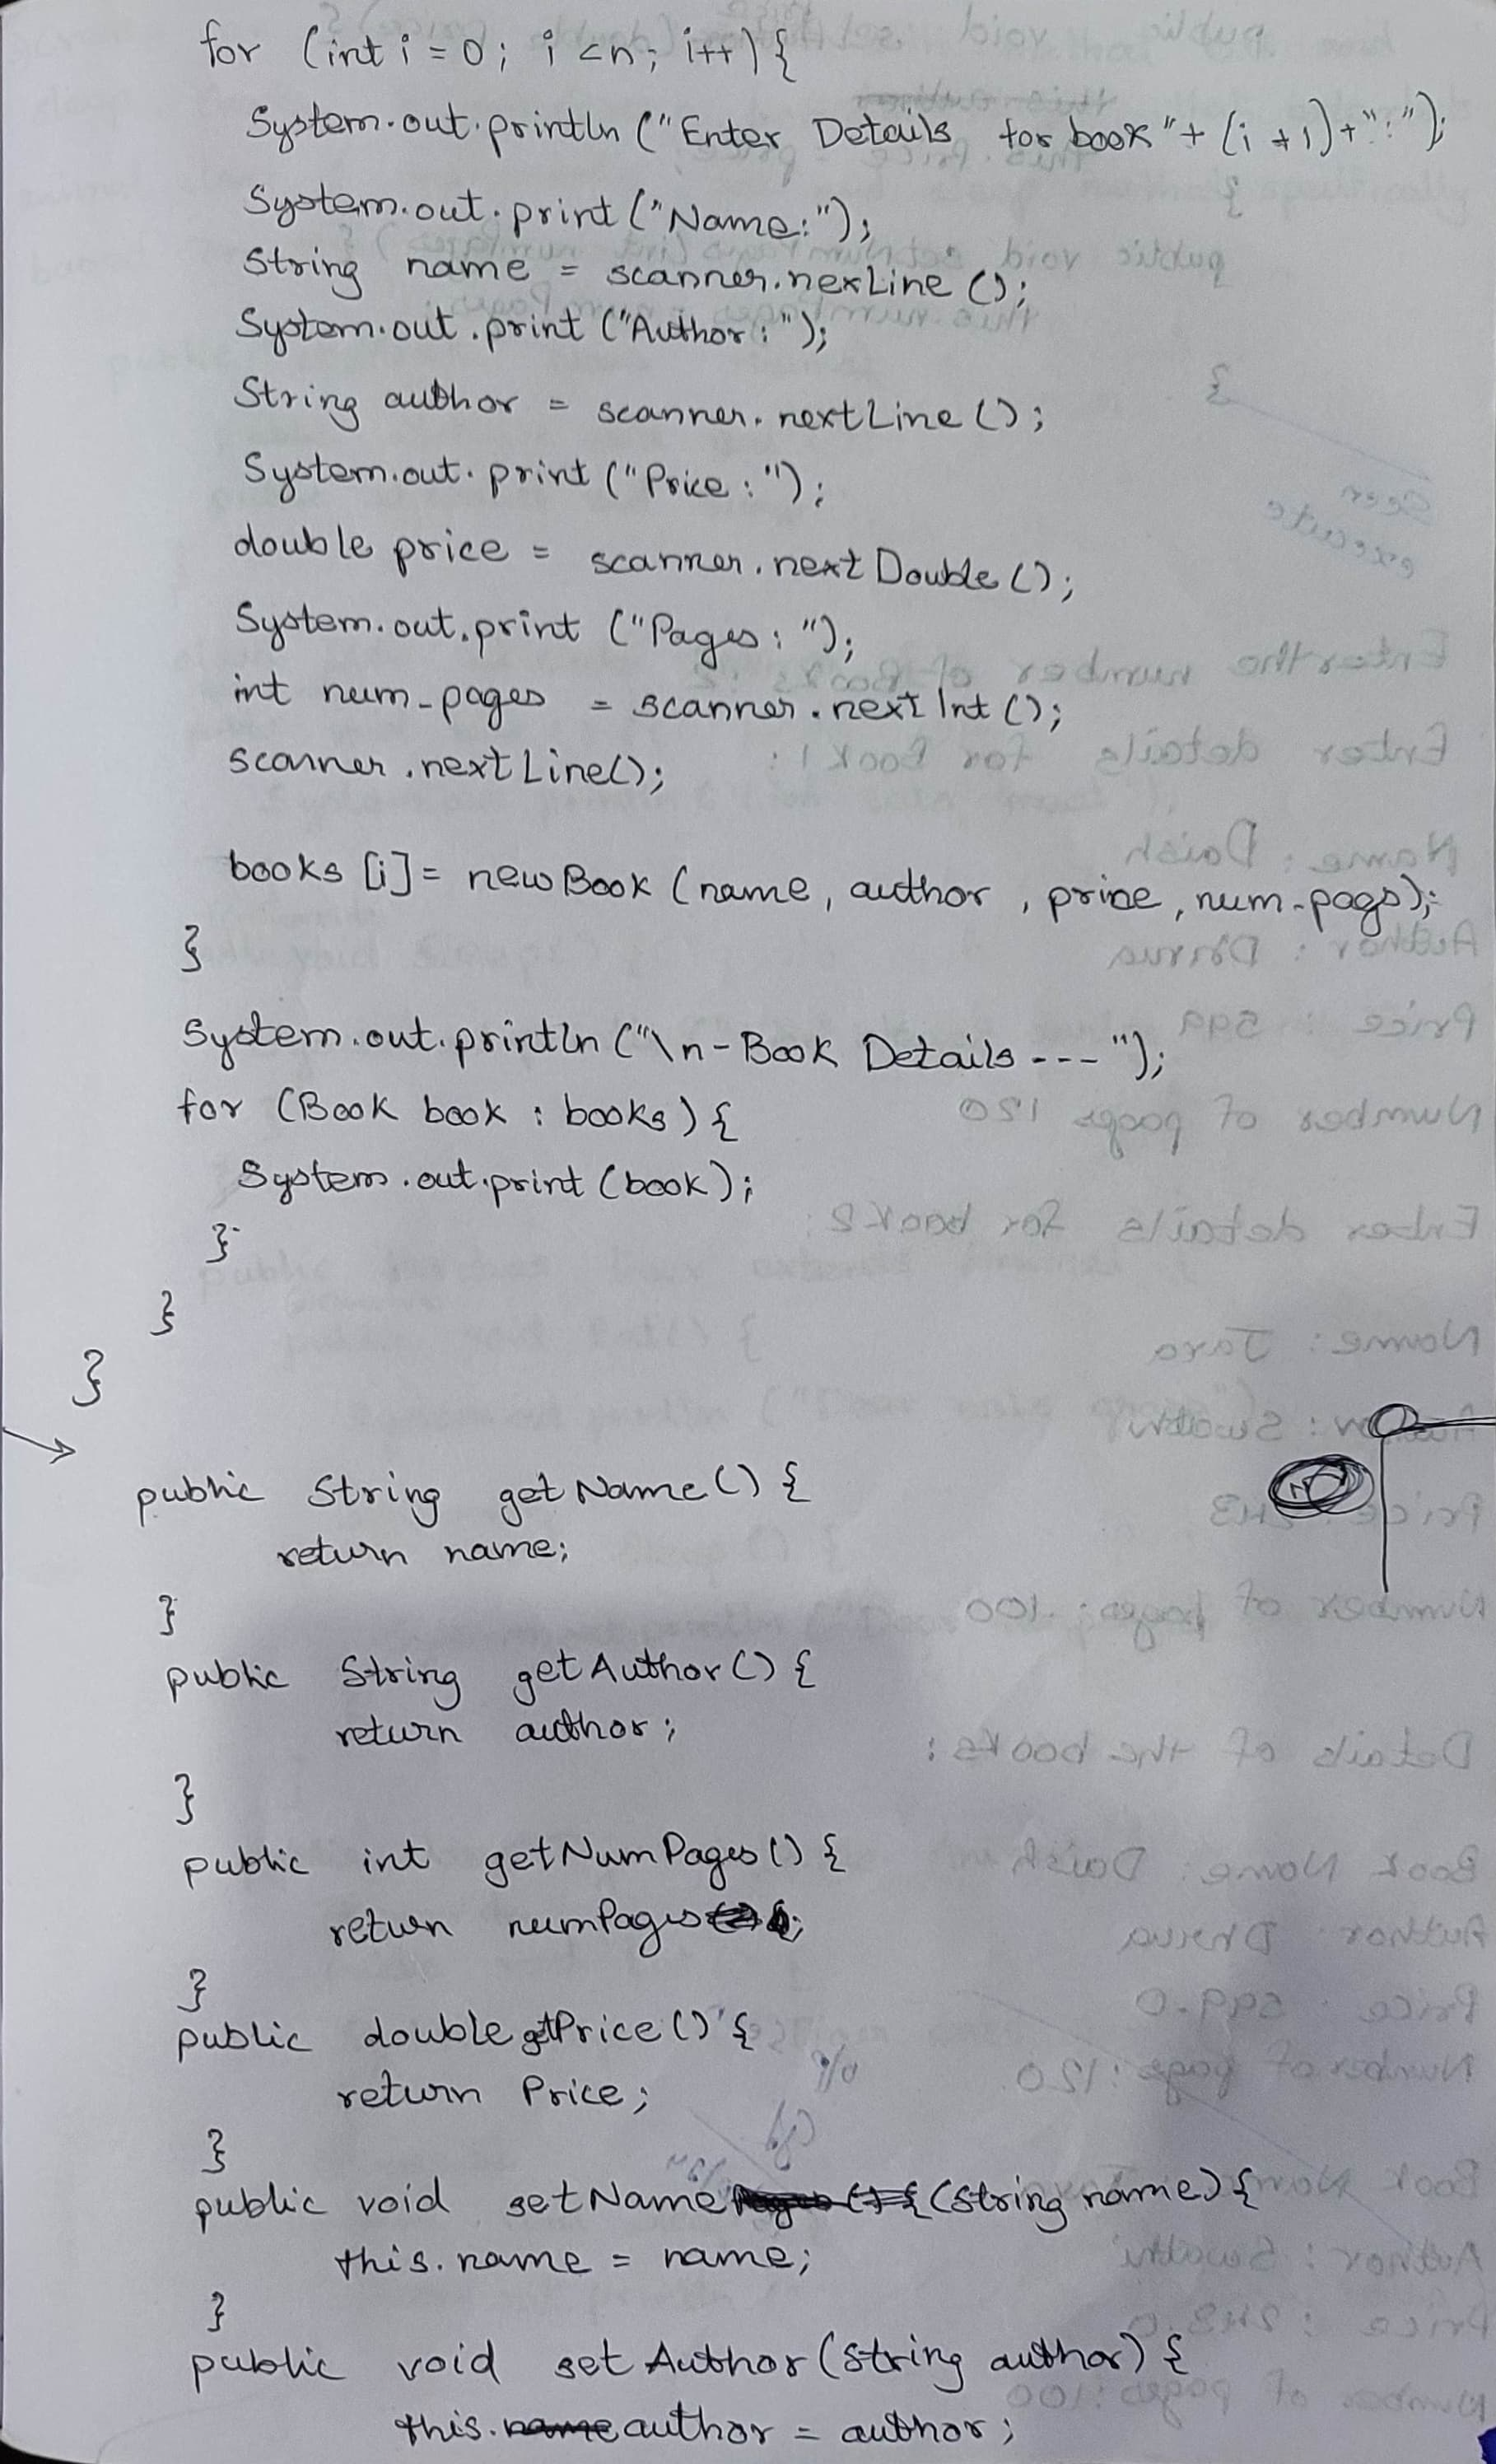 for (int i = 0; i < n; i++) {
System.out.println ("Enter Details for book" + (i + 1) + ":");
System.out.print ("Name:");
String name = scanner.nexLine ();
System.out.print ("Author:");
String author = scanner.nextLine ();
System.out.print ("Price:");
double price = scanner.nextDouble ();
System.out.print ("Pages: ");
int num_pages = scanner.nextInt ();
scanner.nextLine();
books [i] = new Book (name, author, price, num-pags);
}
System.out.println ("\n-Book Details ---");
for (Book book : books) {
System.out.print (book);
}
}
}
public String getName () {
return name;
}
public String getAuthor () {
return author;
}
public int getNumPages () {
return numPages;
}
public double getPrice () {
return Price;
}
public void setName (String name) {
this.name = name;
}
public void setAuthor (String author) {
this.author = author;